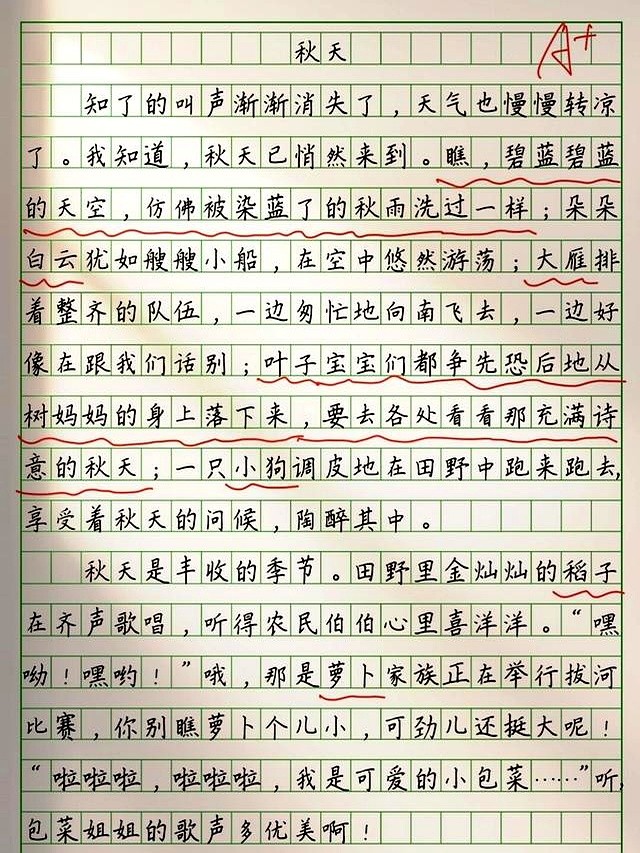 A+
秋天
知了的叫声渐渐消失了，天气也慢慢转凉
了。我知道，秋天已悄然来到。瞧，碧蓝碧蓝
的天空，仿佛被染蓝了的秋雨洗过一样；朵朵
白云犹如艘艘小船，在空中悠然游荡；大雁排
着整齐的队伍，一边匆忙地向南飞去，一边好
像在跟我们话别；叶子宝宝们都争先恐后地从
树妈妈的身上落下来，要去各处看看那充满诗
意的秋天；一只小狗调皮地在田野中跑来跑去，
享受着秋天的问候，陶醉其中。
秋天是丰收的季节。田野里金灿灿的稻子
在齐声歌唱，听得农民伯伯心里喜洋洋。“嘿
呦！嘿哟！”哦，那是萝卜家族正在举行拔河
比赛，你别瞧萝卜个儿小，可劲儿还挺大呢！
“啦啦啦，啦啦啦，我是可爱的小包菜……”听，
包菜姐姐的歌声多优美啊！